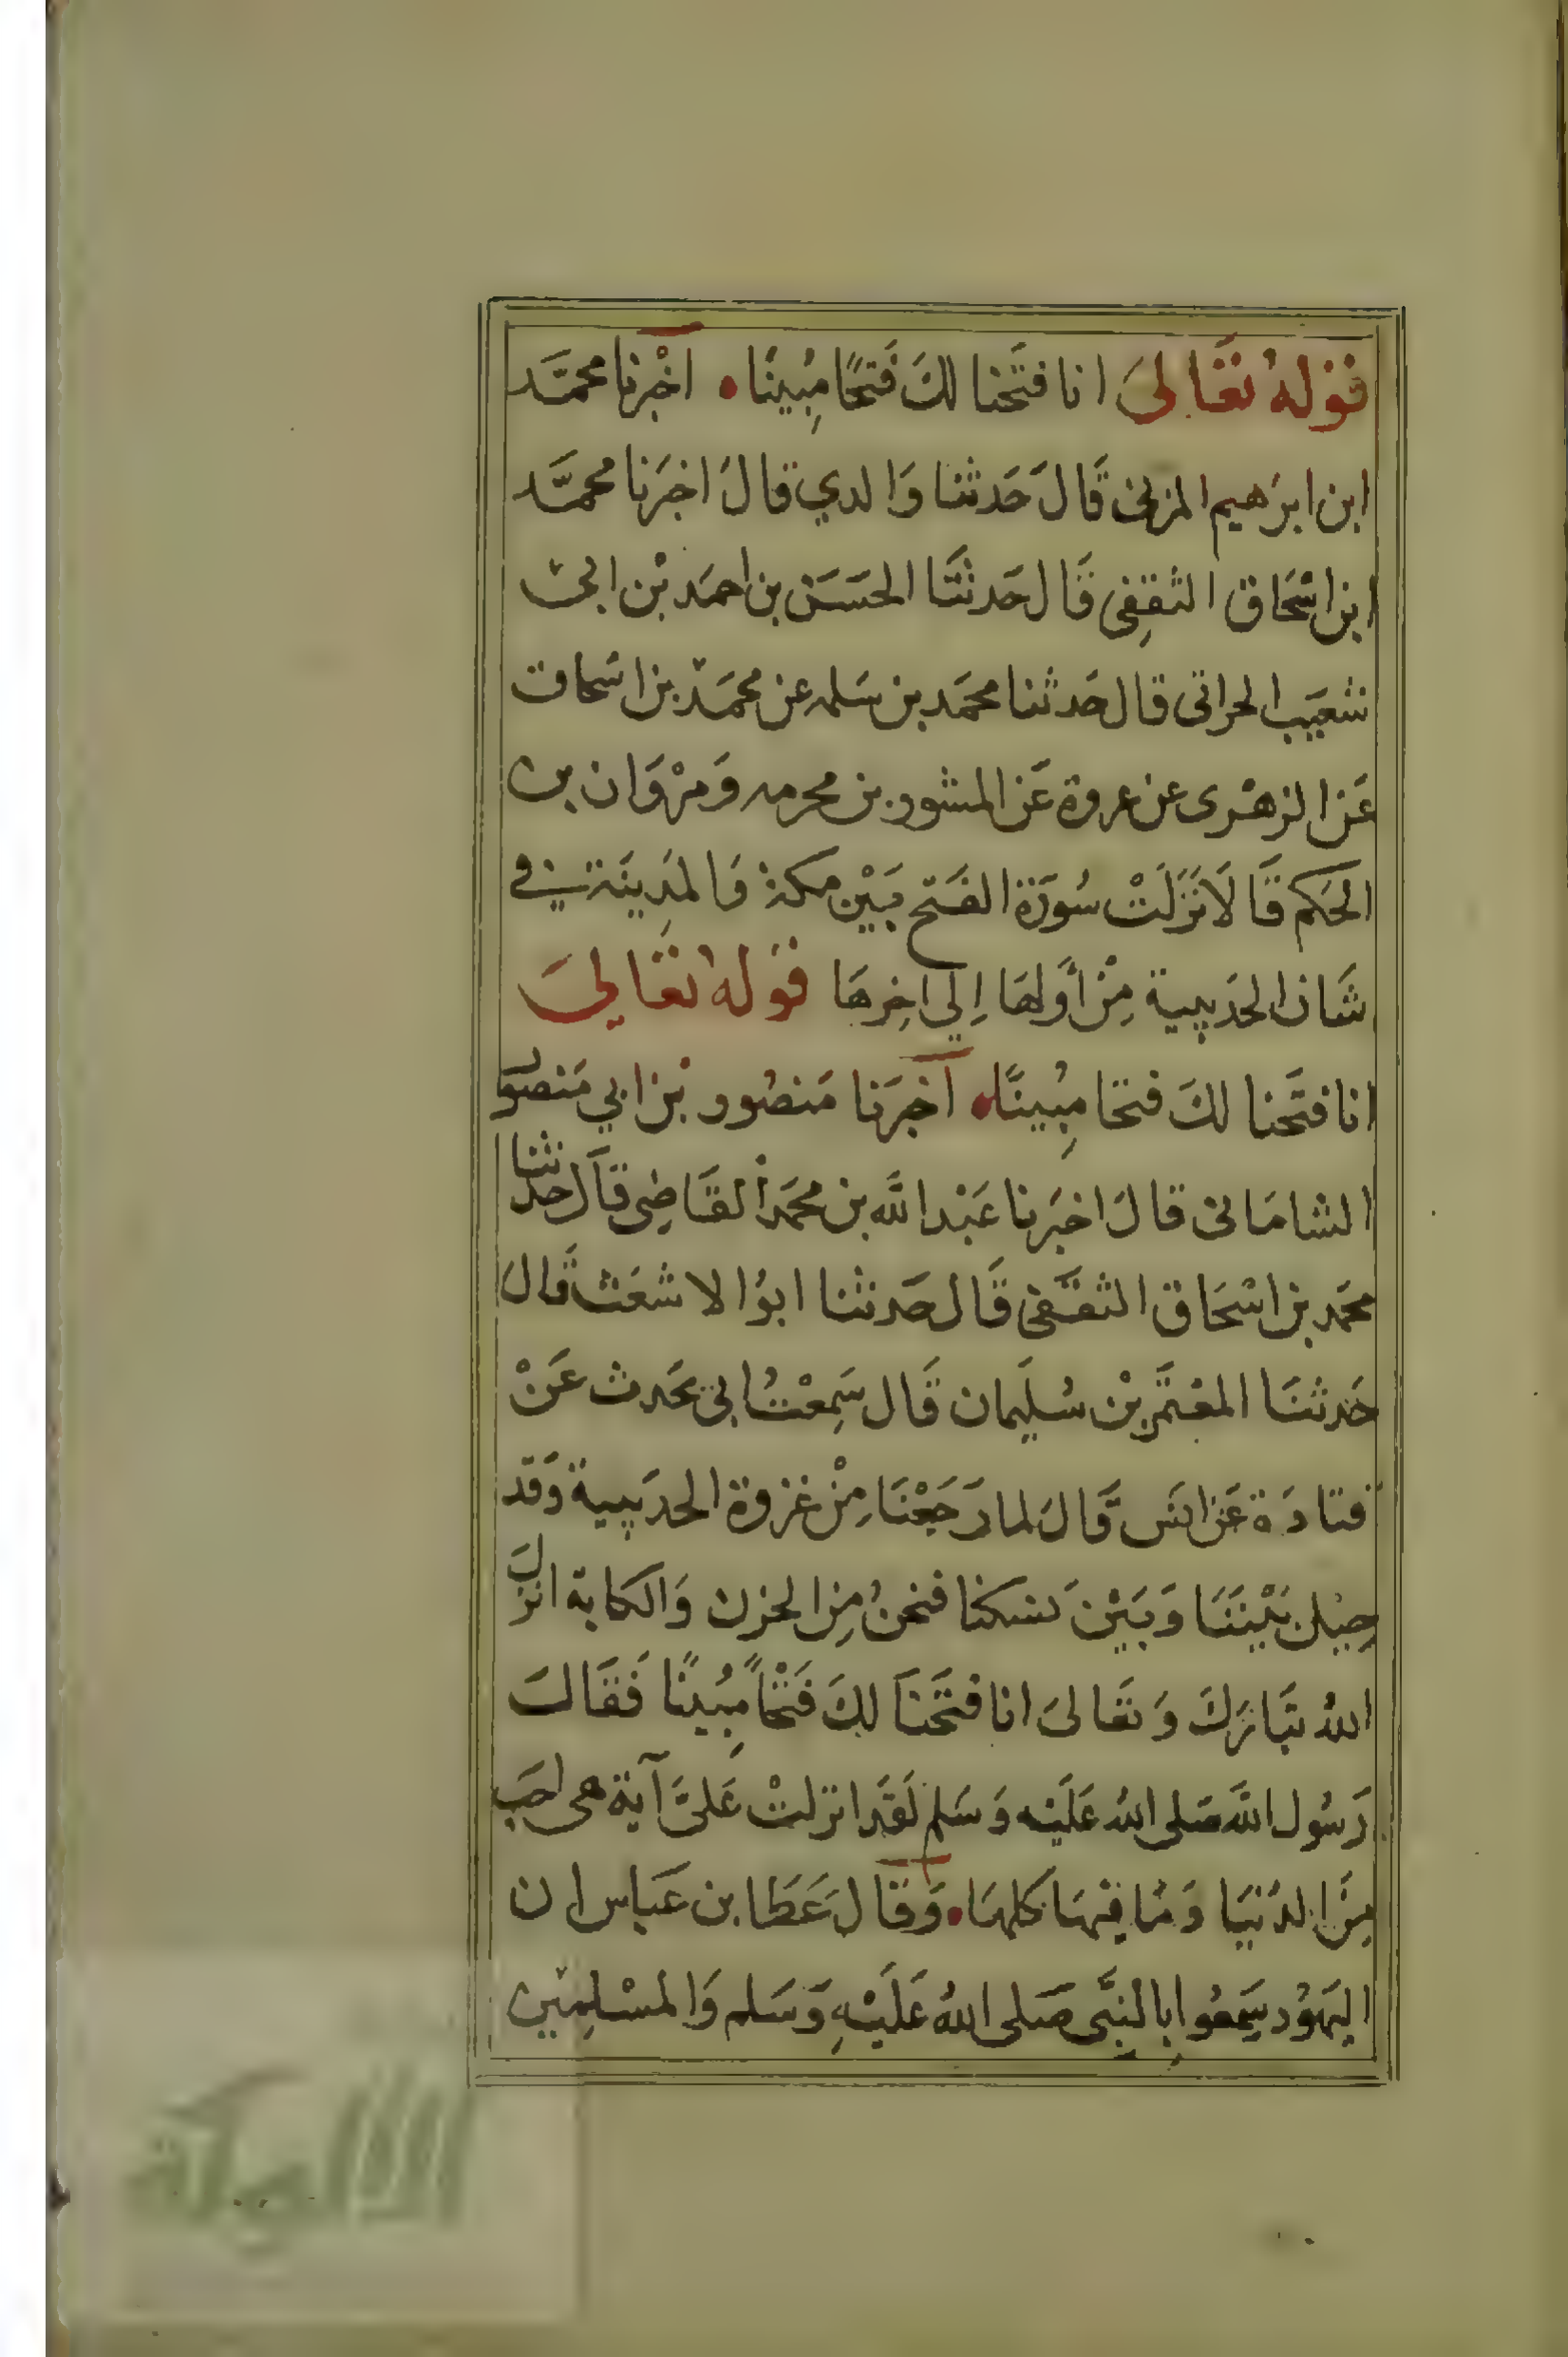 قوله تعالى انا فتحنا لك فتحا مبينا اخبرنا محمد
ابن ابرهيم المزني قال حدثنا والدي قال اخبرنا محمد
ابن اسحاق الثقفي قال حدثنا الحسن بن احمد بن ابي
شعيب الحراني قال حدثنا محمد بن سلمه عن محمد بن اسحاق
عن الزهرى عن عروة عن المسور بن مخرمه ومروان بن
الحكم قالا نزلت سورة الفتح بين مكة والمدينة في
شان الحديبية من أولها إلي اخرها قوله تعالى
انا فتحنا لك فتحا مبينا اخبرنا منصور بن ابي منصور
السامانى قال اخبرنا عبد الله بن محمد القاضي قال حدثنا
محمد بن اسحاق الثقفى قال حدثنا ابو الاشعث قال
حدثنا المعتمر بن سليمان قال سمعت ابى يحدث عن
قتادة عن انس قال لما رجعنا من غزوة الحديبية وقد
حيل بيننا وبين نسكنا فنحن من الحزن والكابة انزل
الله تبارك وتعالى انا فتحنا لك فتحا مبينا فقال
رسول الله صلى الله عليه وسلم لقد انزلت علي آية هى احب
من الدنيا وما فيها كلها وقال عطا بن عباس ان
اليهود سمعوا بالنبي صلى الله عليه وسلم والمسلمين
الألوكة